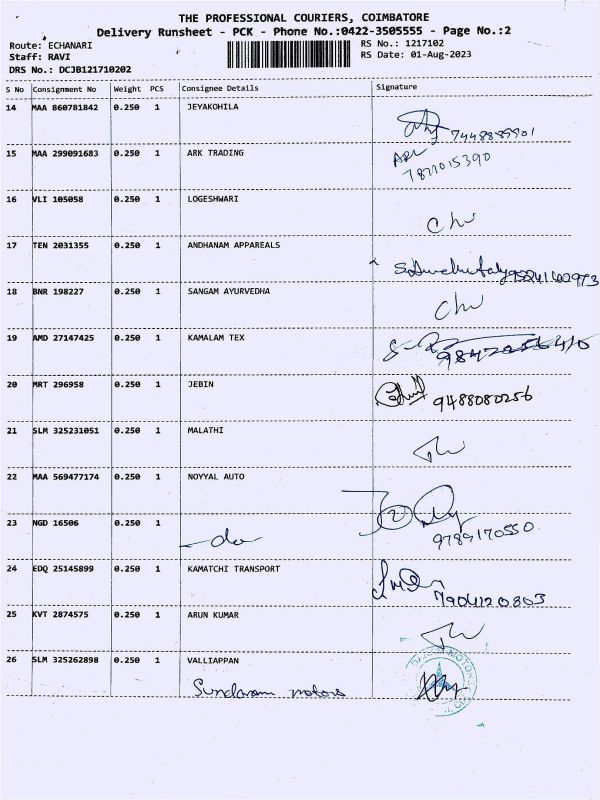 THE PROFESSIONAL COURIERS, COIMBATORE
Delivery Runsheet - PCK - Phone No.:0422-3505555 - Page No.:2
Route: ECHANARI RS No.: 1217102
Staff: RAVI RS Date: 01-Aug-2023
DRS No.: DCJB121710202
S No Consignment No Weight PCS Consignee Details Signature
14 MAA 860781842 0.250 1 JEYAKOHILA
15 MAA 299091683 0.250 1 ARK TRADING
7871015390
16 VLI 105058 0.250 1 LOGESHWARI
17 TEN 2031355 0.250 1 ANDHANAM APPAREALS
18 BNR 198227 0.250 1 SANGAM AYURVEDHA
19 AMD 27147425 0.250 1 KAMALAM TEX
20 MRT 296958 0.250 1 JEBIN
9488080256
21 SLM 325231051 0.250 1 MALATHI
22 MAA 569477174 0.250 1 NOYYAL AUTO
23 NGD 16506 0.250 1
-do
9789170550
24 EDQ 25145899 0.250 1 KAMATCHI TRANSPORT
7904120803
25 KVT 2874575 0.250 1 ARUN KUMAR
26 SLM 325262898 0.250 1 VALLIAPPAN
Sundaram motors